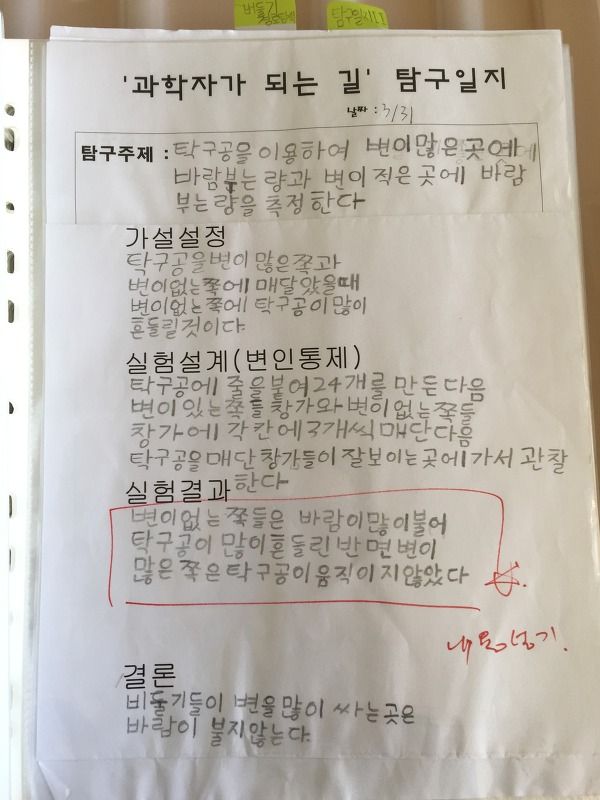 탐구일지
'과학자가 되는 길' 탐구일지
날짜 : 3/31
탐구주제 : 탁구공을 이용하여 변이많은 곳에
바람부는 량과 변이 적은 곳에 바람
부는량을 측정한다
가설설정
탁구공을변이 많은쪽과
변이없는쪽에 매달았을때
변이없는쪽에 탁구공이많이
흔들릴것이다
실험설계(변인통제)
탁구공에 줄을붙여24개를 만든다음
변이있는쪽들창가와변이없는쪽들
창가에 각칸에3개씩매단다음
탁구공을매단창가들이잘보이는곳에가서 관찰
한다
실험결과
변이없는 쪽들은 바람이많이불어
탁구공이 많이흔들린반면변이
많은 쪽은탁구공이움직이지않았다
결론
비둘기들이 변을많이 싸는곳은
바람이 불지않는다.